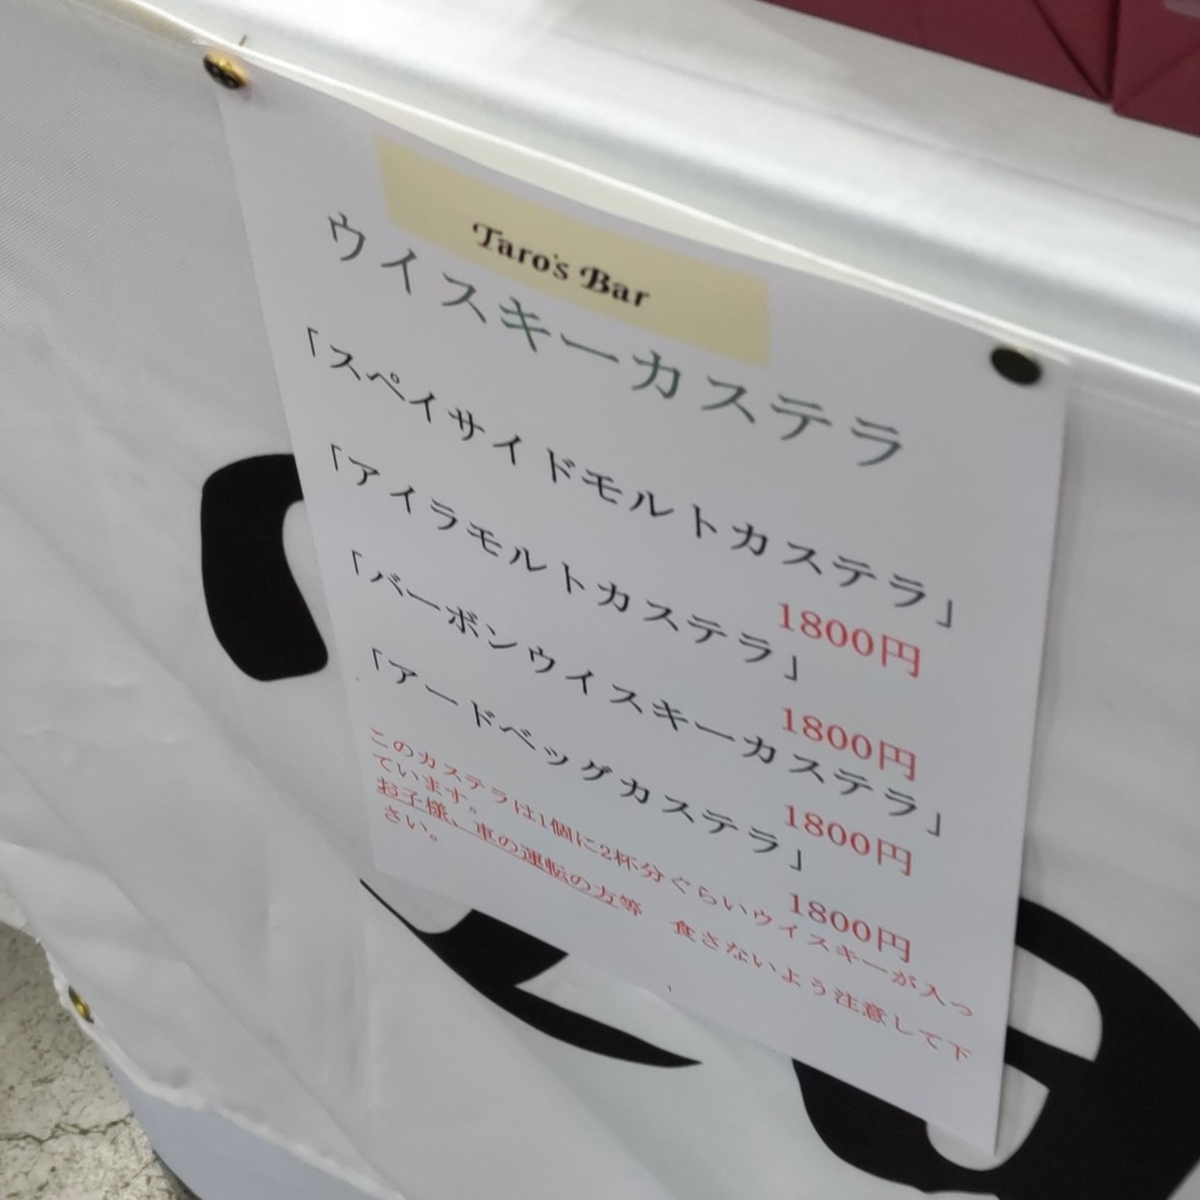 Taro's Bar
ウイスキーカステラ
「スペイサイドモルトカステラ」
1800円
「アイラモルトカステラ」
1800円
「バーボンウイスキーカステラ」
1800円
「アードベッグカステラ」
1800円
このカステラは1個に2杯分ぐらいウイスキーが入っ
ています。
お子様、車の運転の方等　食さないよう注意して下
さい。